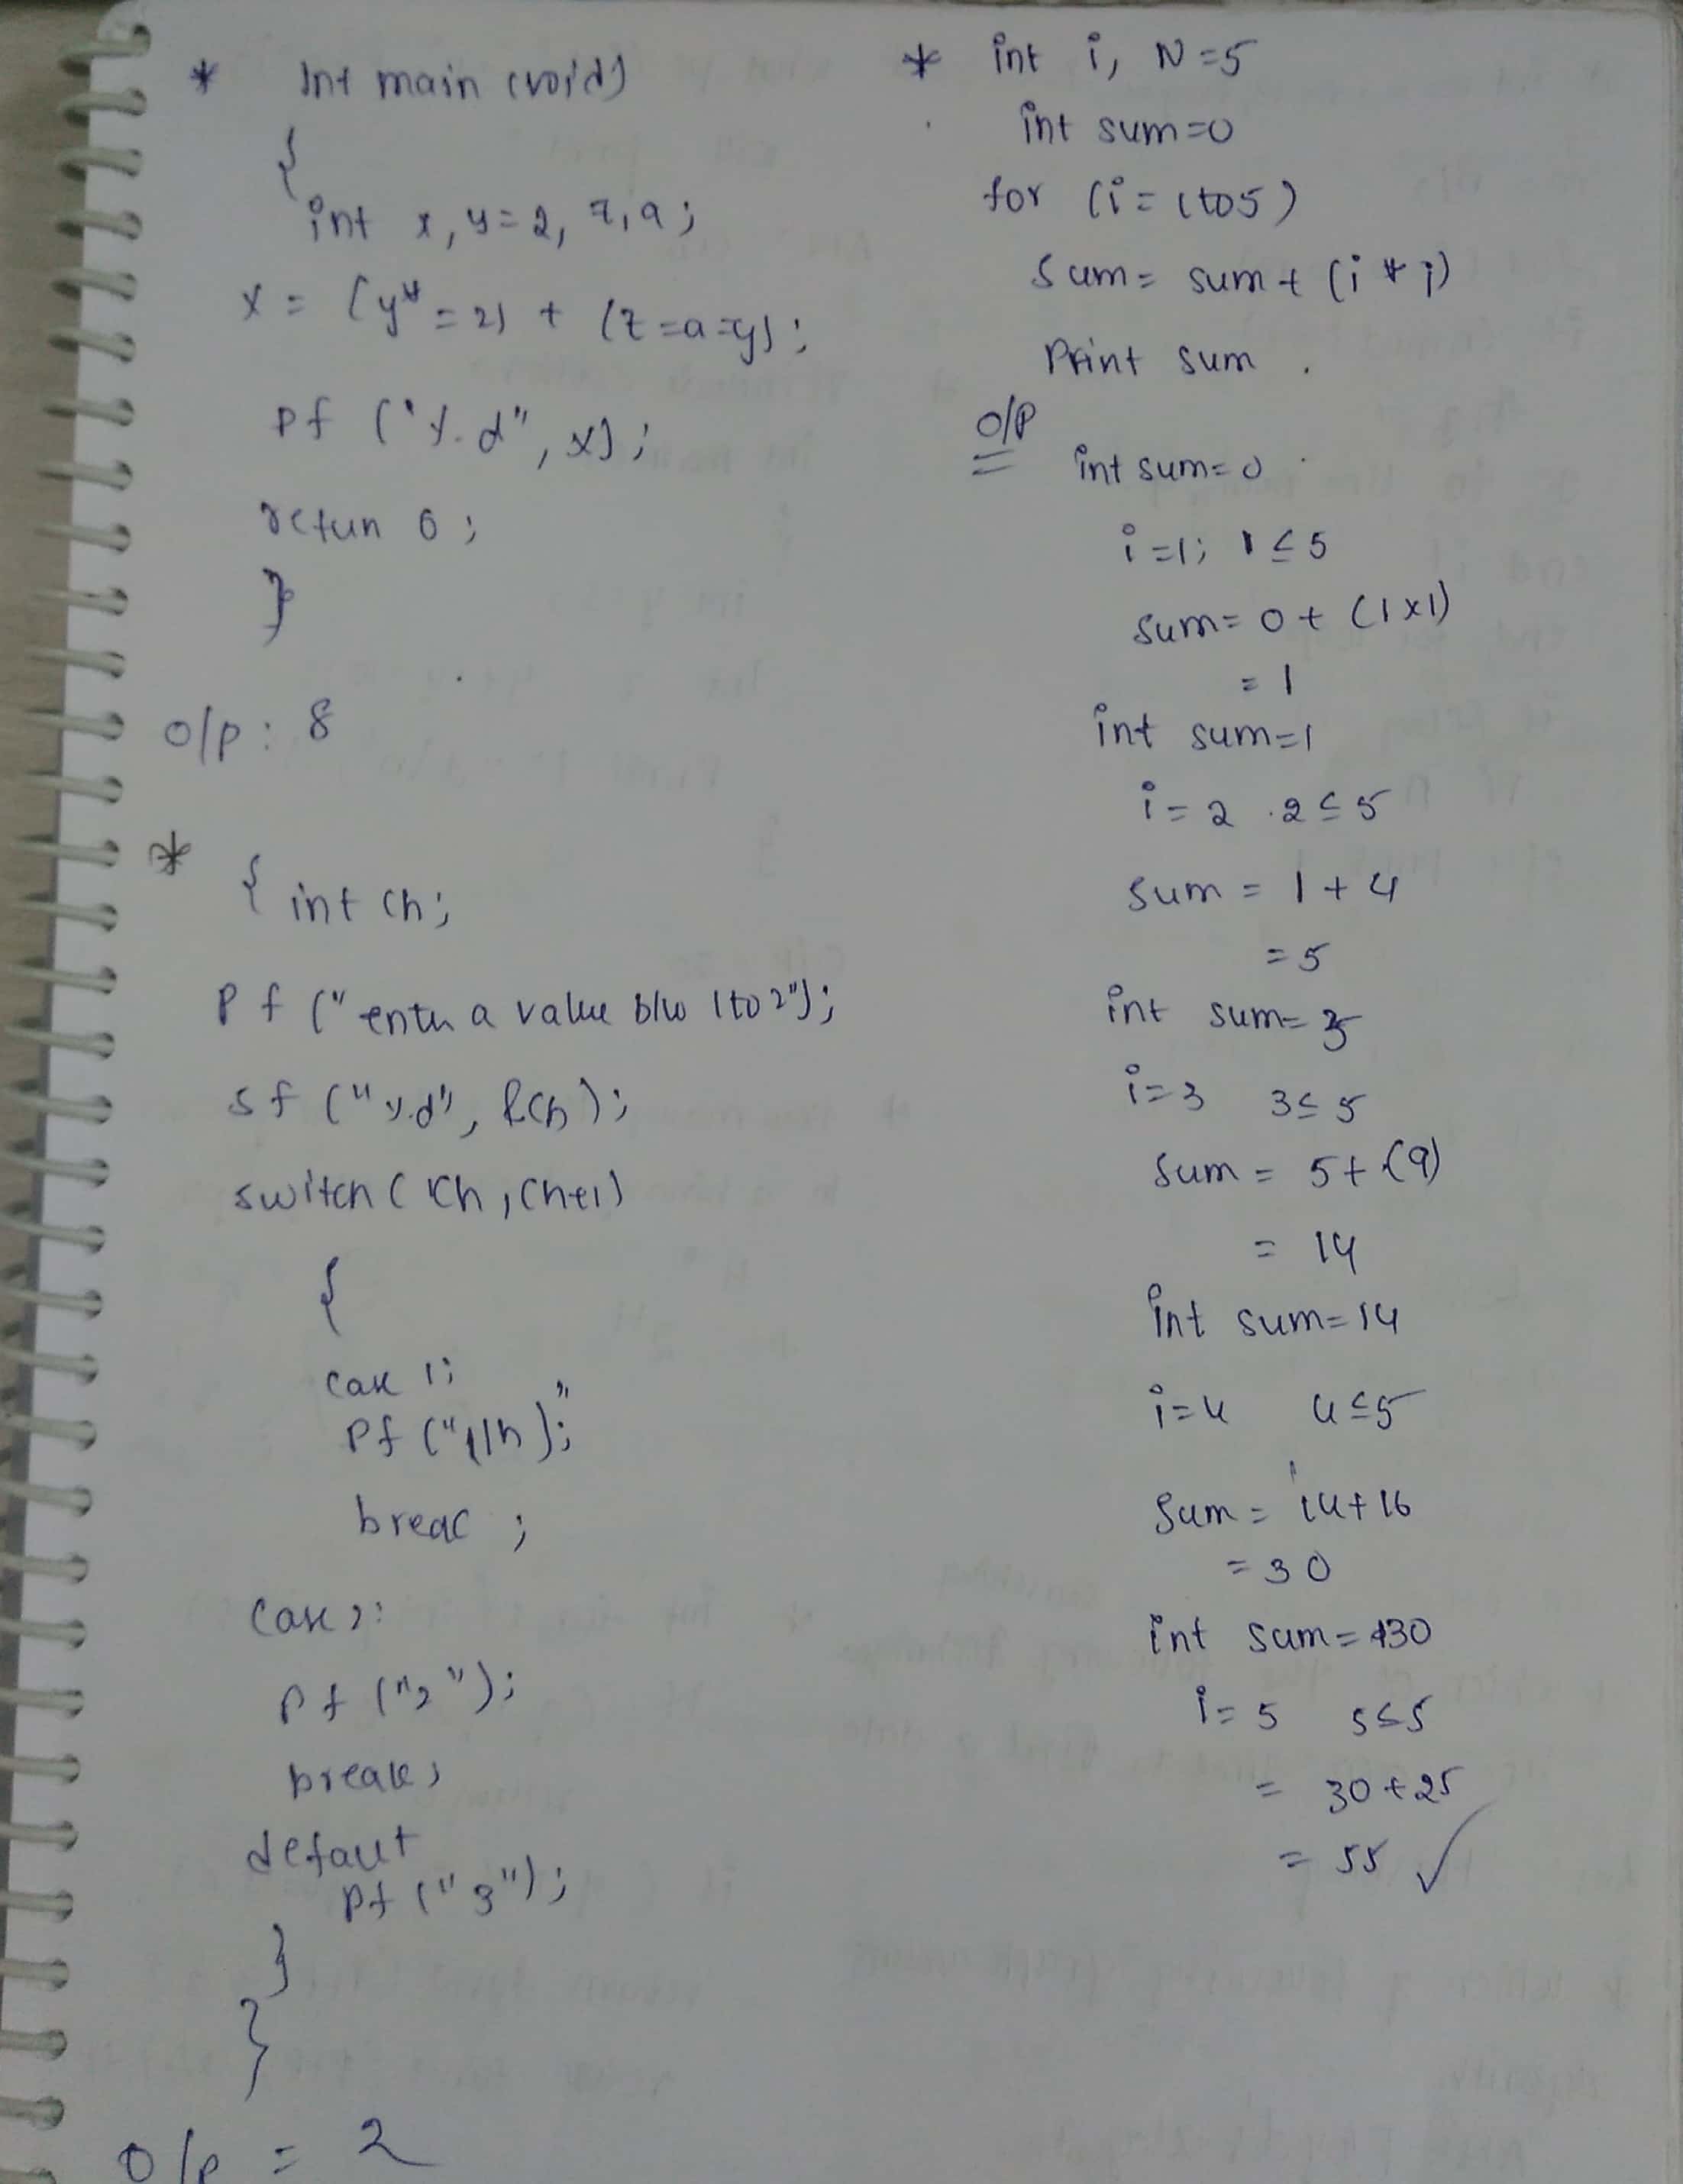 * Int main (void)
{
int x, y = 2, z, a;
x = (y* = 2) + (z = a = y);
Pf ("%d", x);
retun 0;
}
o/p : 8
* { int ch;
Pf (" entr a value b/w 1 to 2");
sf ("%d", &ch);
switch ( ch, ch+1)
{
case 1;
Pf ("1\n");
breac ;
case 2:
Pf ("2");
break;
defaut
Pf ("3");
}
}
o/p = 2
* int i, N = 5
int sum = 0
for (i = 1 to 5)
Sum = sum + (i * i)
Print sum .
O/P
int sum = 0
i = 1; 1 ≤ 5
sum = 0 + (1 x 1)
= 1
int sum = 1
i = 2 2 ≤ 5
sum = 1 + 4
= 5
int sum = 5
i = 3 3 ≤ 5
Sum = 5 + (9)
= 14
int sum = 14
i = 4 4 ≤ 5
Sum = 14 + 16
= 30
int sum = 30
i = 5 5 ≤ 5
= 30 + 25
= 55 ✓